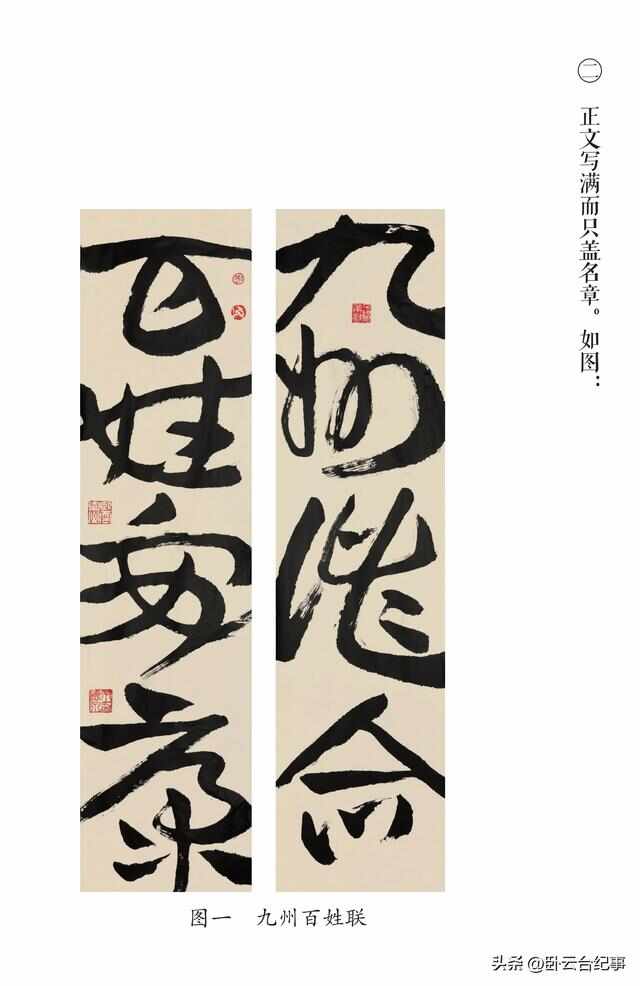 ㊁ 正文写满而只盖名章。如图：
九州谐合
百姓安康
图一 九州百姓联
头条@卧云台纪事